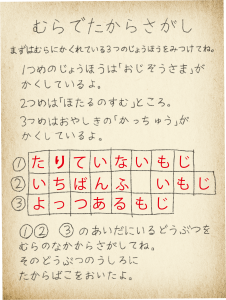 むらでたからさがし
まずはむらにかくれている3つのじょうほうをみつけてね。
1つめのじょうほうは「おじぞうさま」が
かくしているよ。
2つめは「ほたるのすむ」ところ。
3つめはおやしきの「かっちゅう」が
かくしているよ。
① たりていないもじ
② いちばんふ いもじ
③ よっつあるもじ
①② ③ のあいだにいるどうぶつを
むらのなかからさがしてね。
そのどうぶつのうしろに
たからばこをおいたよ。